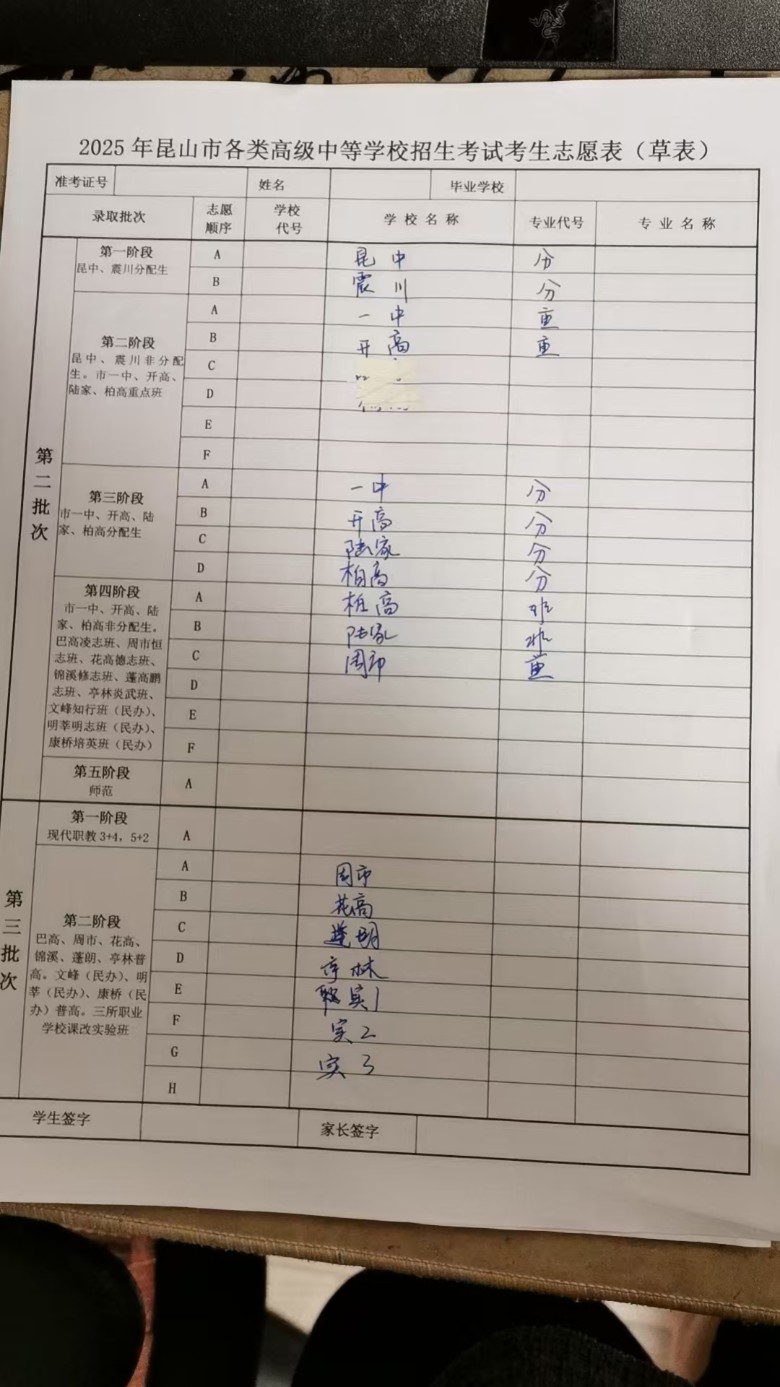 2025 年昆山市各类高级中等学校招生考试考生志愿表（草表）
准考证号 姓名 毕业学校
录取批次 志愿顺序 学校代号 学校名称 专业代号 专业名称
第二批次
第一阶段
昆中、震川分配生
A 昆中 分
B 震川 分
第二阶段
昆中、震川非分配
生。市一中、开高、
陆家、柏高重点班
A 一中 重
B 开高 重
C
D
E
F
第三阶段
市一中、开高、陆
家、柏高分配生
A 一中 分
B 开高 分
C 陆家 分
D 柏高 分
第四阶段
市一中、开高、陆
家、柏高非分配生。
巴高凌志班、周市恒
志班、花高德志班、
锦溪修志班、蓬高鹏
志班、亭林炎武班、
文峰知行班（民办）、
明莘明志班（民办）、
康桥培英班（民办）
A 柏高 非
B 陆家 非
C 周市 重
D
E
F
第五阶段
师范
A
第三批次
第一阶段
现代职教3+4，5+2
A
第二阶段
巴高、周市、花高、
锦溪、蓬朗、亭林普
高。文峰（民办）、明
莘（民办）、康桥（民
办）普高。三所职业
学校课改实验班
A 周市
B 花高
C 蓬朗
D 亭林
E 实1
F 实2
G 实3
H
学生签字 家长签字